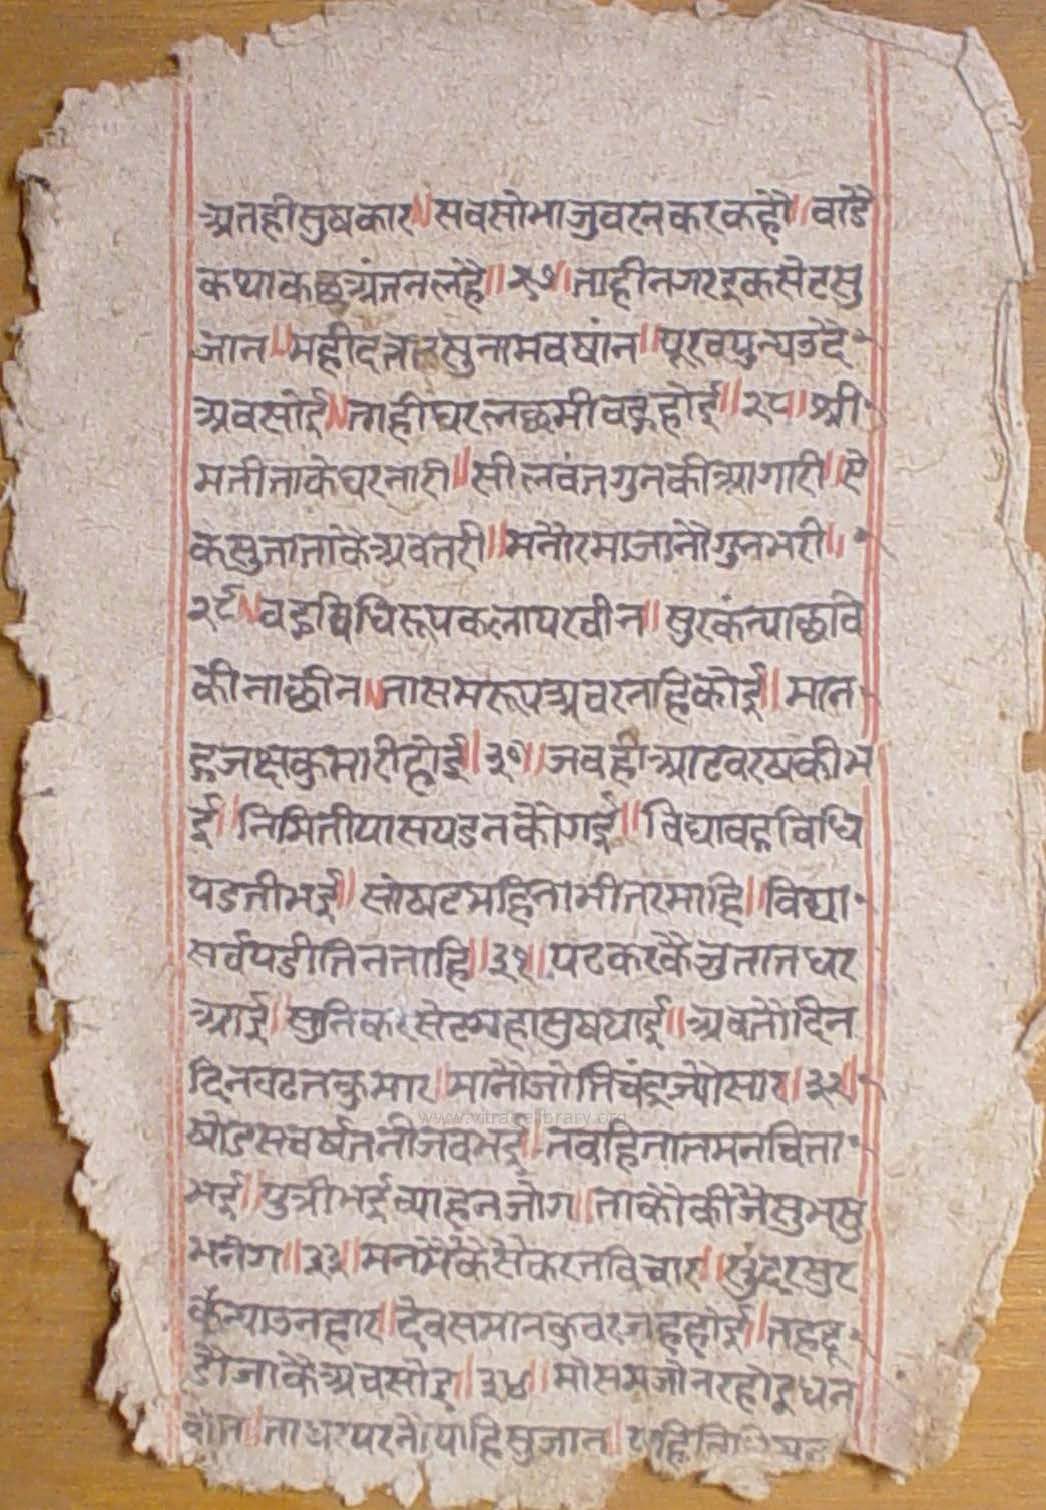 अतहीसुषकार॥सवसोभाजुवरनकरकहौ॥वाडै
कथाकछुअंतनलहै॥२७॥ताहीनगरइकसेटसु
जान॥महीदत्ततसुनामवषांन॥पूरवपुन्यउदै
अवसोई॥ताहीघरलछमीवहुहोई॥२८॥श्री
मतीताकेघरनारी॥सीलवंतगुनकीआगारी॥ऐ
कसुताताकेअवतरी॥मनौरमाजानौगुनभरी॥
२९॥वहुविधिरूपकलापरवीन॥सुरकंन्याछवि
कीनाछीन॥तासमरूपअवरनाहिकोई॥मान
हुजक्षकुमारीहोई॥३०॥जवहीआटवरषकीभ
ई॥निमितीपासपडनकौगई॥विद्यावहुविधि
पडतीभई॥सोष्टमहिनाभीतरमाहि॥विद्या
सर्वपडीतिनताहि॥३१॥पटकरकैजुतातघर
आई॥सुनिकरसेटमहासुषपाई॥अवतौदिन
दिनवटतकुमार॥मानौजोतिचंद्रज्यौसार॥३२॥
षोडसवर्षतनीजवभई॥तवहितातमनचिता
भई॥पुत्रीभईव्याहनजोग॥ताकौकीजैसुभसु
भनोग॥३३॥मनमैकैसैकरतविचार॥सुंदरसुर
कंन्याउनहार॥देवसमानकुवरजहहोई॥तहढू
डौजाकैअवसोइ॥३४॥मोसमजोनरहोइधन
वान॥ताघरपरनौयाहिसुजान॥